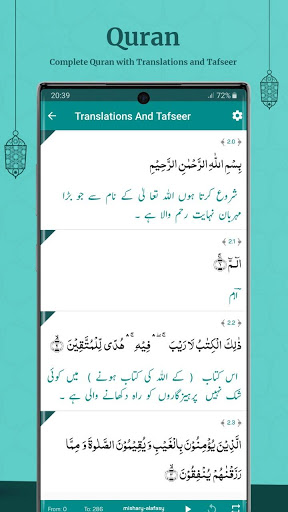 Quran
Complete Quran with Translations and Tafseer
20:39
72%
Translations And Tafseer
2.0
بِسْمِ اللّٰهِ الرَّحْمٰنِ الرَّحِيْمِ
شروع کرتا ہوں اللہ تعا لٰی کے نام سے جو بڑا
مہربان نہایت رحم والا ہے ۔
2.1
الٓمّٓ ۚ‏﴿۱﴾
الم
2.2
ذٰلِكَ الْڪِتٰبُ لَا رَيْبَ ۛۚ ۖ فِيْهِ ۛۚ هُدًى لِّلْمُتَّقِيْنَۙ‏ ﴿۲﴾
اس کتاب ( کے اللہ کی کتاب ہونے ) میں کوئی
شک نہیں پرہیزگاروں کو راہ دکھانے والی ہے ۔
2.3
الَّذِيْنَ يُؤْمِنُوْنَ بِالْغَيْبِ وَ يُقِيْمُوْنَ الصَّلٰوةَ وَ مِمَّا
رَزَقْنٰهُمْ يُنْفِقُوْنَۙ‏ ﴿۳﴾
From: 0
To: 286
mishary-alafasy